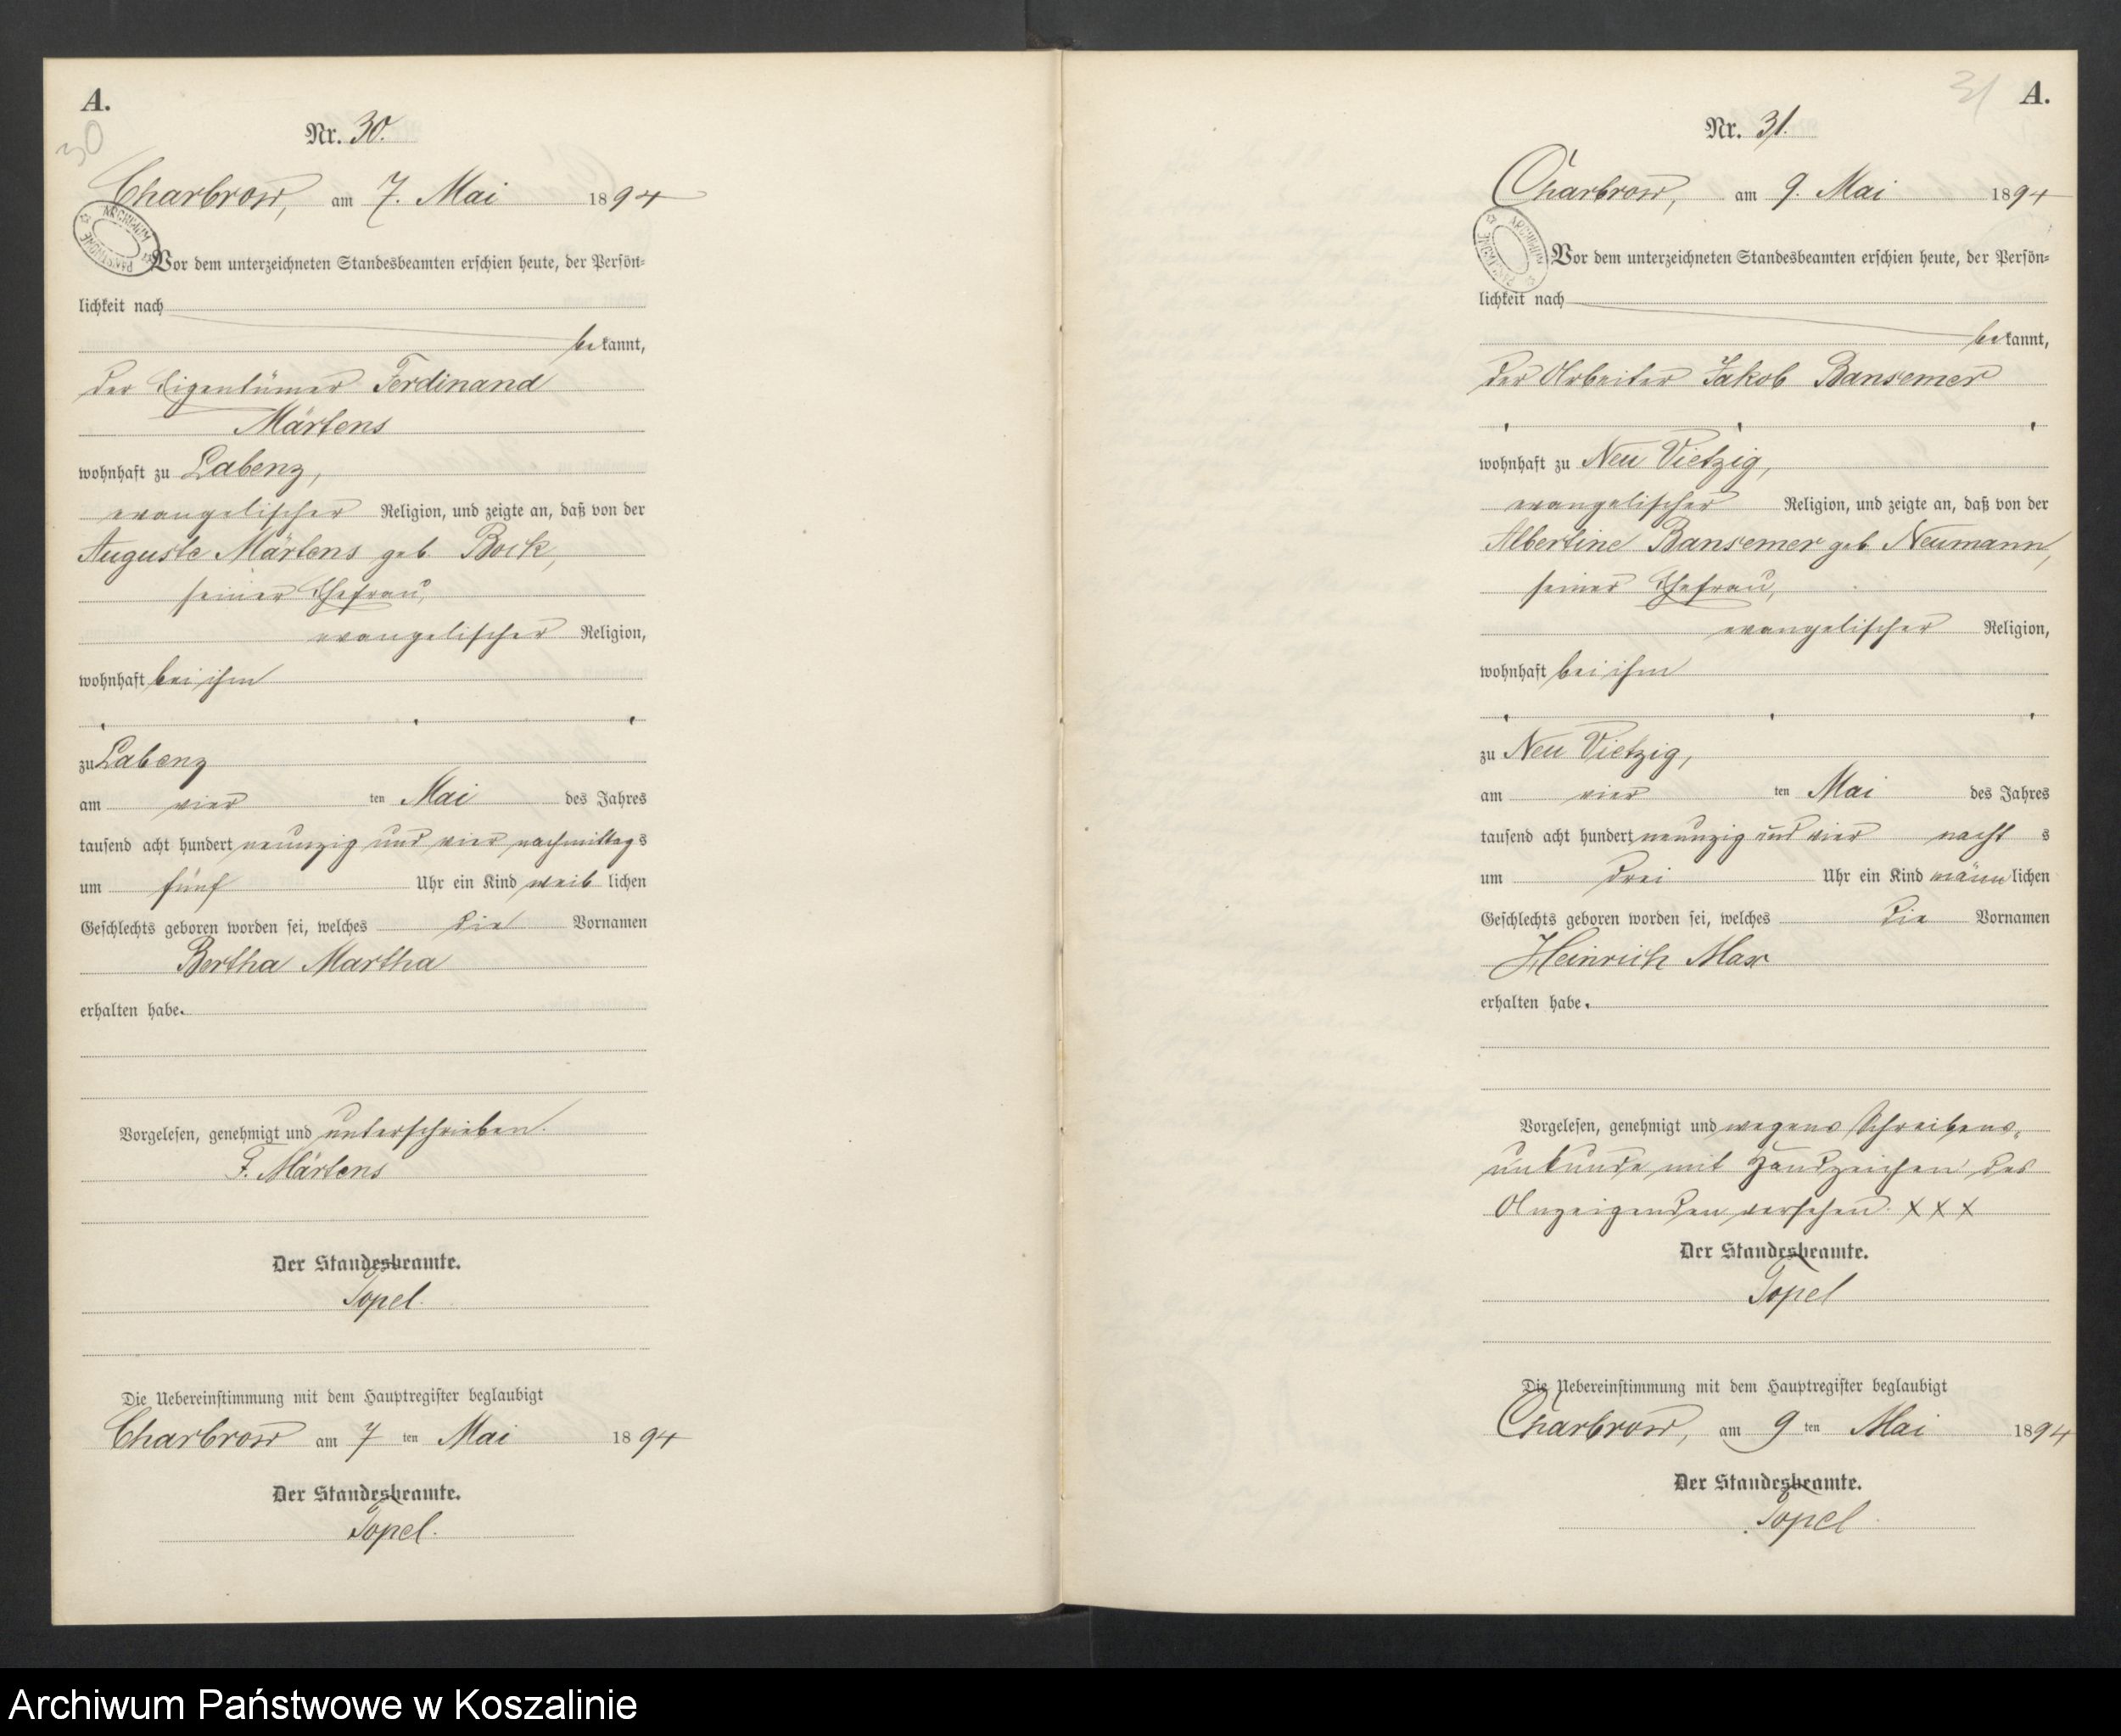 A.
30
Nr. 30.
Charbrow, am 7. Mai 1894
ARCHIWUM PAŃSTWOWE
Vor dem unterzeichneten Standesbeamten erschien heute, der Persön-
lichkeit nach
bekannt,
der Eigentümer Ferdinand
Märtens
wohnhaft zu Labenz,
evangelischer Religion, und zeigte an, daß von der
Auguste Märtens geb. Bock,
seiner Ehefrau,
evangelischer Religion,
wohnhaft bei ihm
zu Labenz
am vier ten Mai des Jahres
tausend acht hundert neunzig und vier nachmittags
um fünf Uhr ein Kind weiblichen
Geschlechts geboren worden sei, welches die Vornamen
Bertha Martha
erhalten habe.
Vorgelesen, genehmigt und unterschrieben.
F. Märtens
Der Standesbeamte.
Topel.
Die Uebereinstimmung mit dem Hauptregister beglaubigt
Charbrow am 7 ten Mai 1894
Der Standesbeamte.
Topel.
31 A.
Nr. 31.
Charbrow, am 9. Mai 1894
ARCHIWUM PAŃSTWOWE
Vor dem unterzeichneten Standesbeamten erschien heute, der Persön-
lichkeit nach
bekannt,
der Arbeiter Jakob Bansemer
wohnhaft zu Neu Vietzig,
evangelischer Religion, und zeigte an, daß von der
Albertine Bansemer geb. Neumann,
seiner Ehefrau,
evangelischer Religion,
wohnhaft bei ihm
zu Neu Vietzig,
am vier ten Mai des Jahres
tausend acht hundert neunzig und vier nachts
um drei Uhr ein Kind männlichen
Geschlechts geboren worden sei, welches die Vornamen
Heinrich Max
erhalten habe.
Vorgelesen, genehmigt und wegens Schreibens-
unkunde mit Handzeichen des
Anzeigenden versehen. XXX
Der Standesbeamte.
Topel
Die Uebereinstimmung mit dem Hauptregister beglaubigt
Charbrow, am 9 ten Mai 1894
Der Standesbeamte.
Topel.
Archiwum Państwowe w Koszalinie